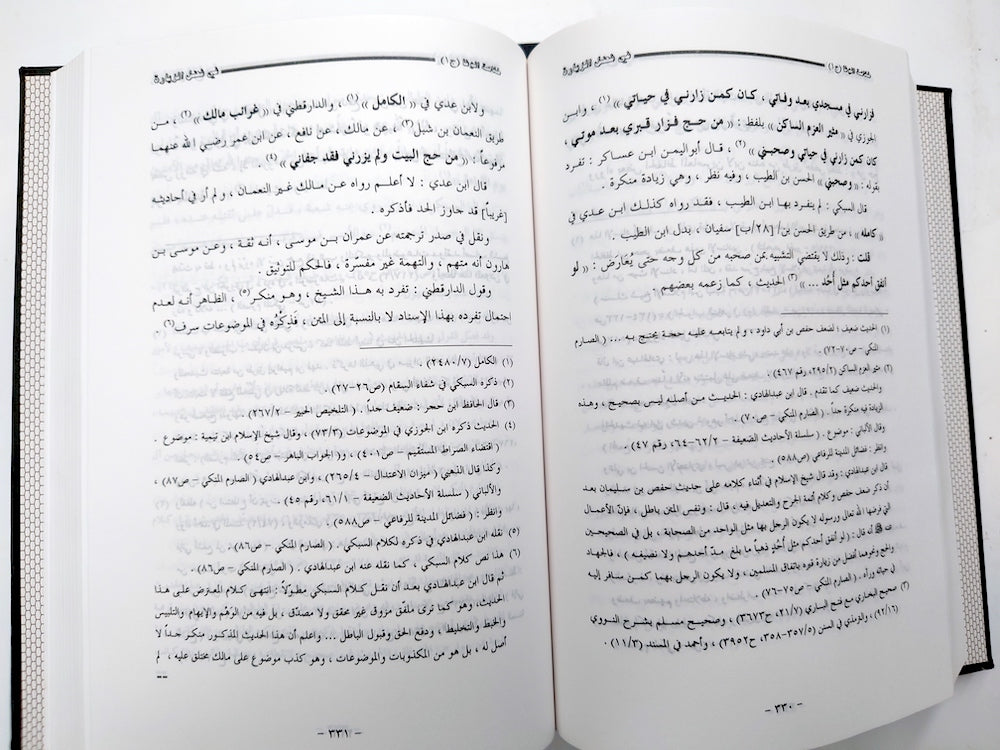 خلاصة الوفا (ج١)
في فضل الزيارة
فزارني في مسجدي بعد وفاتي ، كان كمن زارني في حياتي » (١) ، وابـن
الجوزي في « مثير العزم الساكن » بلفظ : « من حـج فـزار قـبري بعـد مـوتي ،
كان كمن زارني في حياتي وصحبني » (٢) ، قال أبواليمـن ابن عساكر : تفـرد
بقوله : « وصحبني » الحسن بن الطيب ، وفيه نظر ، وهي زيادة منكرة .
قال السبكي : لم ينفـرد بهـا ابـن الطيب ، فقـد رواه كذلـك ابـن عـدي في
« كامله » ، من طريق الحسن بن/ [٢٨/ب] سفيان ، بدل ابن الطيب .
قلت : وذلك لا يقتضي التشبيه بمن صحبه من كل وجه حتى يعارض : « لو
أنفق أحدكم مثل أُحُد ... » (٣) الحديث ، كما زعمه بعضهم .
(١) الحديث ضعيف ؛ لضعف حفص بن أبي داود ، ولم يتابعـه عليـه حجـة يحتج بـه ... ( الصـارم
المنكي - ص٧٠-٧٢) .
(٢) مثير العزم الساكن (٢٩٥/٢، رقم ٤٦٧) .
والحديث ضعيف كما تقدم . قال ابن عبدالهادي : الحديـث مـن أصلـه ليـس بصحيـح ، وهـذه
الزيادة فيه منكرة جداً . ( الصارم المنكي - ص٧٠) .
وقال الألباني : موضوع . ( سلسلة الأحاديث الضعيفة - ٦٢/٢-٦٤، رقم ٤٧) .
وانظر : فضائل المدينة للرفاعي (ص٥٨٨) .
قال ابن عبدالهادي : وقد قال شيخ الإسلام في أثناء كلامه على حديث حفص بن سليمان بعد
أن ذكر ضعف حفص وكلام أئمة الجرح والتعديل فيه ، قال : ونفس المتن باطل ، فإنّ الأعمـال
التي فرضها الله تعالى ورسوله لا يكون الرجل بها مثل الواحد من الصحابة ، بل في الصحيحـين
عنه ﷺ أنه قال : ( لو أنفق أحدكم مثل أُحُدٍ ذهباً ما بلغ مـدّ أحدهـم ولا نصيفـه ) ، فالجهـاد
والحج ونحوهما أفضل من زيارة قبره باتفاق المسلمين ، ولا يكون الرجل بهما كمـن سـافر إليـه
في حياته ورآه . ( الصارم المنكي - ص٧٥-٧٦) .
(٣) صحيح البخاري مـع فتـح البـاري (٢١/٧، ح٣٦٧٣) ، وصحيـح مسـلم بشـرح النـووي
(٩٢/١٦) ، والترمذي في السنن (٣٥٧/٥-٣٥٨، ح٣٩٥٢) ، وأحمد في المسند (١١/٣) .
- ٣٣٠ -
خلاصة الوفا (ج١)
في فضل الزيارة
ولابن عدي في « الكامل » (١) ، والدارقطني في « غرائب مالك » (٢) ، مـن
طريق النعمان بن شبل (٣) ، عن مالك ، عن نافع ، عن ابن عمر رضـي الله عنهمـا
مرفوعاً : « من حج البيت ولم يزرني فقد جفاني » (٤) .
قال ابن عدي : لا أعلـم رواه عن مـالك غـير النعمـان ، ولم أر في أحاديثه
[غريباً] قد جاوز الحد فأذكره .
ونقل في صدر ترجمته عن عمران بـن موسـى ، أنـه ثقـة ، وعـن موسـى بن
هارون أنه متهم ، والتهمة غير مفسّرة ، فالحكم للتوثيق .
وقول الدارقطني : تفـرد به هـذا الشيـخ ، وهـو منكـر (٥) ، الظاهـر أنـه لعـدم
احتمال تفرده بهذا الإسناد لا بالنسبة إلى المتن ، فَذِكْرُه في الموضوعات سرف (٦) .
(١) الكامل (٢٤٨٠/٧) .
(٢) ذكره السبكي في شفاء السقام (ص٢٦-٢٧) .
(٣) قال الحافظ ابن حجر : ضعيف جداً . ( التلخيص الحبير - ٢٦٧/٢) .
(٤) الحديث ذكره ابن الجوزي في الموضوعات (٧٣/٣) ، وقال شيخ الإسلام ابن تيمية : موضوع .
( اقتضاء الصراط المستقيم - ص٤٠١) ، و( الجواب الباهر - ص٥٤) .
وكذا قال الذهبي ( ميزان الاعتدال - ٢٦٥/٤) ، وابن عبدالهادي ( الصارم المنكي - ص٨٧) ،
والألباني ( سلسلة الأحاديث الضعيفة - ٦١/١، رقم ٤٥) .
وانظر : ( فضائل المدينة للرفاعي - ص٥٨٨) .
(٥) نقله ابن عبدالهادي في ذكره لكلام السبكي . ( الصارم المنكي - ص٨٦) .
(٦) هذا نص كلام السبكي ، كما نقله عنه ابن عبدالهادي . ( الصارم المنكي - ص٨٦) .
ثم قال ابن عبدالهادي بعـد أن نقـل كـلام السبكي مطـوّلاً : انتهـى كـلام المعـترض علـى هـذا
الحديث، وهو كما ترى ملفّق مزوق غير محقق ولا مصدّق، بل فيه من الوَهْم والإيهام والتلبيس
والخبط والتخليط ، ودفع الحق وقبول الباطل ... واعلم أن هذا الحديث المذكـور منكـر جـداً لا
أصل له ، بل هو من المكذوبات والموضوعات ، وهـو كذب موضوع على مالك مختلق عليه ، لم
--
- ٣٣١ -